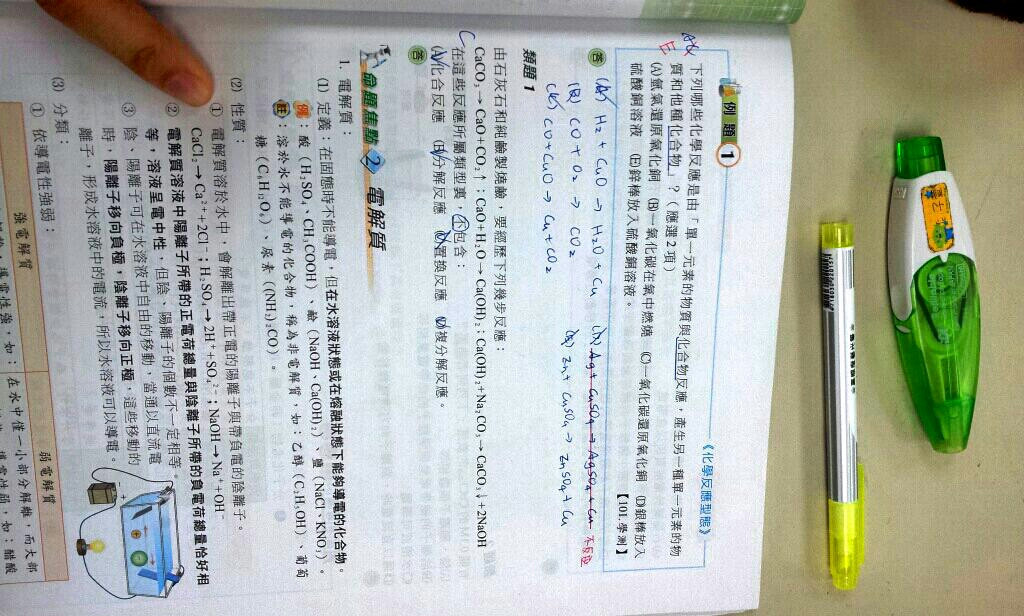 例題 1
《化學反應型態》
AE
E
下列哪些化學反應是由「單一元素的物質與化合物反應，產生另一種單一元素的物
質和他種化合物」？（應選2項）
【101.學測】
(A)氫氣還原氧化銅 (B)一氧化碳在氧中燃燒 (C)一氧化碳還原氧化銅 (D)銀棒放入
硫酸銅溶液 (E)鋅棒放入硫酸銅溶液。
答
(A) H₂ + CuO → H₂O + Cu
(B) CO + O₂ → CO₂
(C) CO + CuO → Cu + CO₂
(D) Ag + CuSO₄ → AgSO₄ + Cu 不反應
(E) Zn + CuSO₄ → ZnSO₄ + Cu
類題 1
由石灰石和純鹼製燒鹼，要經歷下列幾步反應：
CaCO₃→CaO+CO₂↑；CaO+H₂O→Ca(OH)₂；Ca(OH)₂+Na₂CO₃→CaCO₃↓+2NaOH
C
在這些反應所屬類型裏，不包含：
(A)化合反應 (B)分解反應 (C)置換反應 (D)複分解反應。
答
命題焦點 2 電解質
1. 電解質：
(1) 定義：在固態時不能導電，但在水溶液狀態或在熔融狀態下能夠導電的化合物。
例：酸（H₂SO₄、CH₃COOH）、鹼（NaOH、Ca(OH)₂）、鹽（NaCl、KNO₃）。
註：溶於水不能導電的化合物，稱為非電解質，如：乙醇（C₂H₅OH）、葡萄
糖（C₆H₁₂O₆）、尿素（(NH₂)₂CO）。
(2) 性質：
① 電解質溶於水中，會解離出帶正電的陽離子與帶負電的陰離子。
CaCl₂→Ca²⁺+2Cl⁻；H₂SO₄→2H⁺+SO₄²⁻；NaOH→Na⁺+OH⁻
② 電解質溶液中陽離子所帶的正電荷總量與陰離子所帶的負電荷總量恰好相
等，溶液呈電中性，但陰、陽離子的個數不一定相等。
③ 陰、陽離子可在水溶液中自由的移動，當通以直流電
時，陽離子移向負極，陰離子移向正極，這些移動的
離子，形成水溶液中的電流，所以水溶液可以導電。
(3) 分類：
① 依導電性強弱：
強電解質
弱電解質
在水中僅一小部分解離，而大部
導電性強，如：
導電性弱，如：醋酸